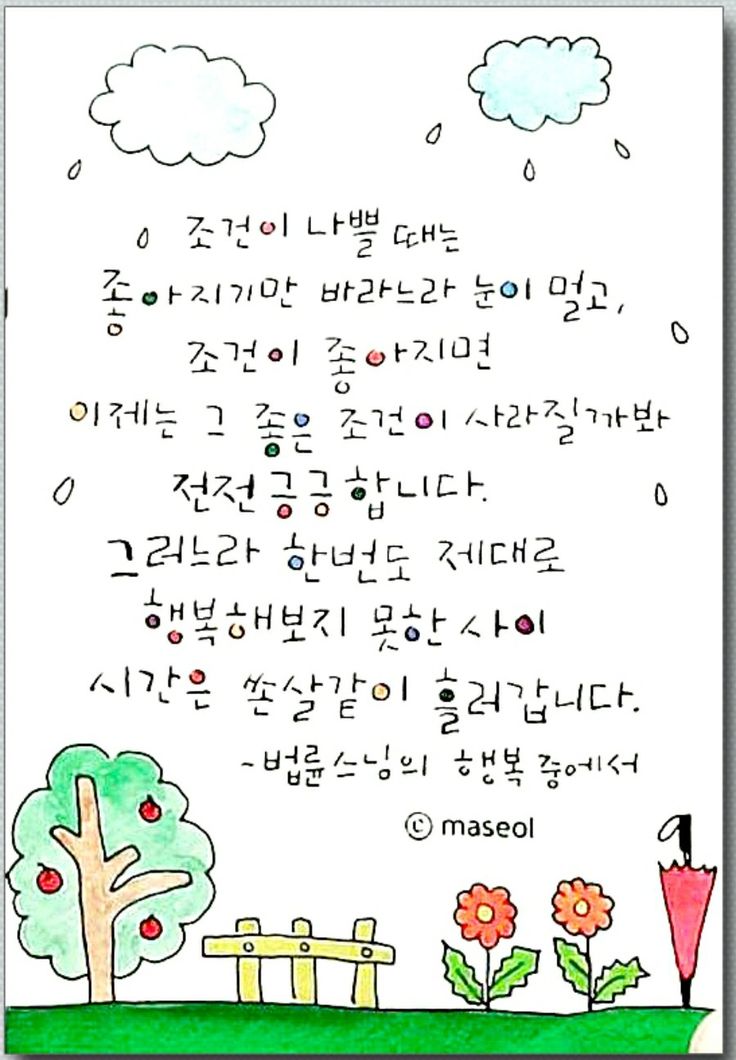 조건이 나쁠 때는
좋아지기만 바라느라 눈이 멀고,
조건이 좋아지면
이제는 그 좋은 조건이 사라질까봐
전전긍긍합니다.
그러느라 한번도 제대로
행복해보지 못한 사이
시간은 쏜살같이 흘러갑니다.
-법륜스님의 행복 중에서
ⓒ maseol